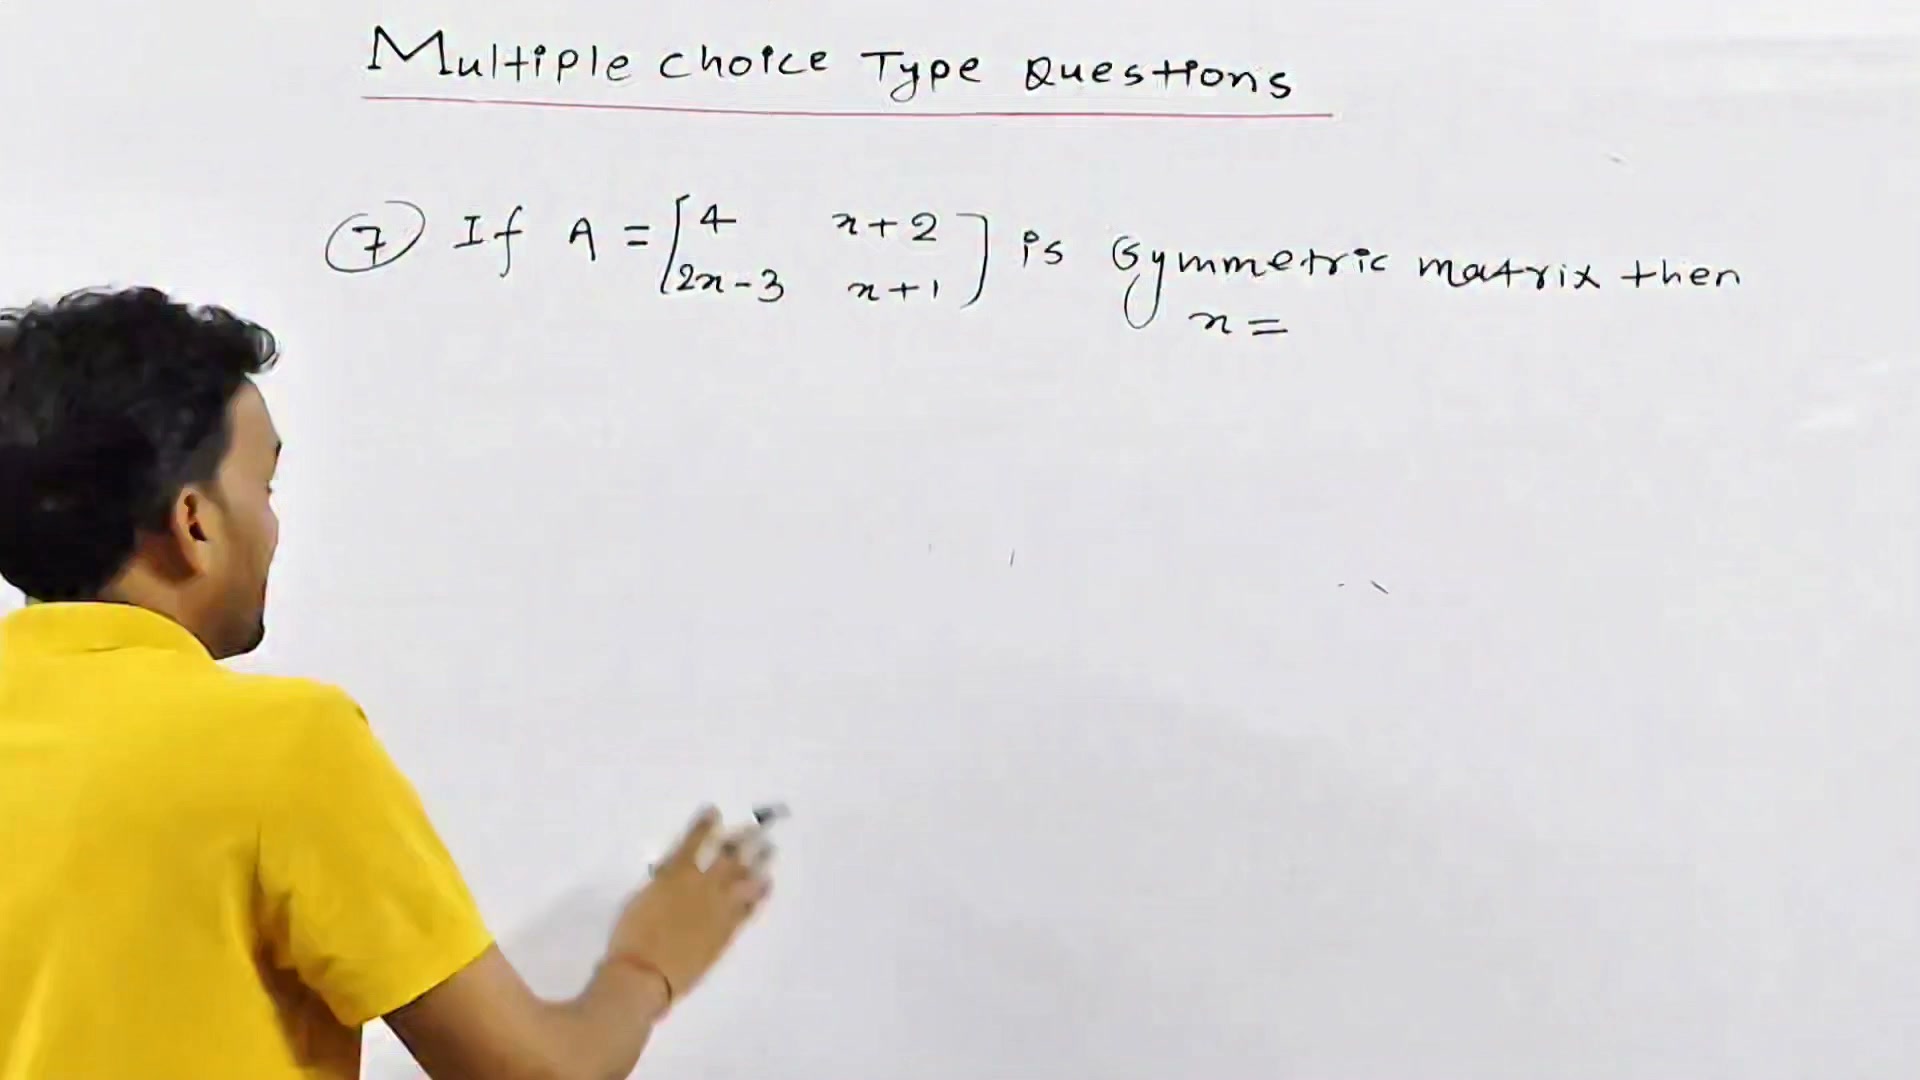 Multiple Choice Type Questions
7 If A = [4 x+2
2x-3 x+1] is Symmetric matrix then
x =